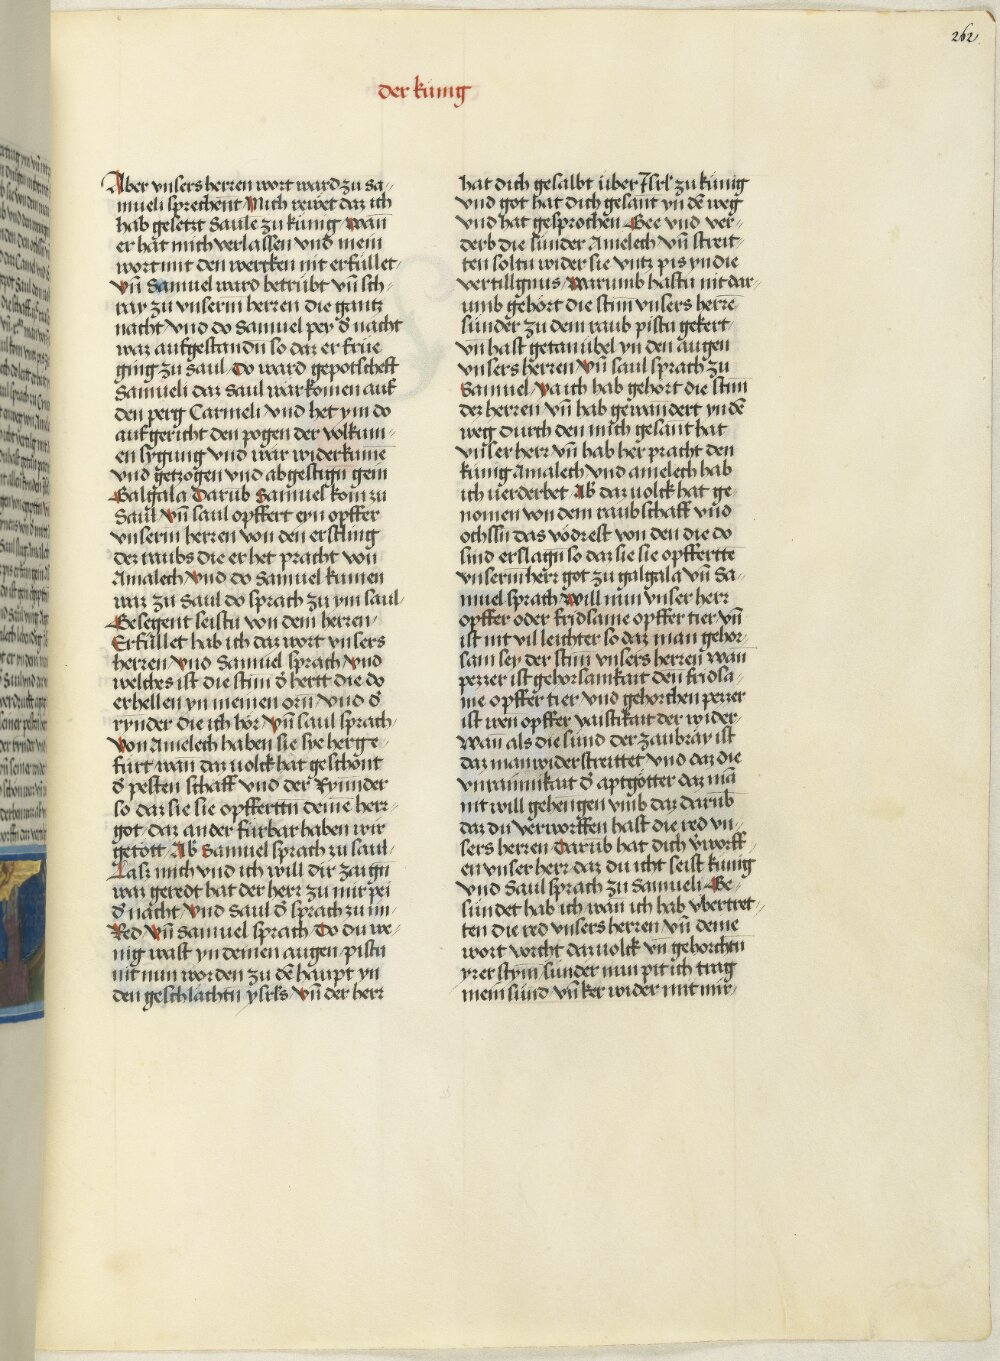 262
der künig
Aber vnsers herren wort ward zu sa-
mueli sprechent Mich rewet daz ich
hab gesetzt Saule zu künig wan
er hat mich verlassen vnd mein
wort mit den wercken nit erfüllet
vn̄ Samuel ward betrübt vn̄ sch-
ray zu vnserm herren die gantz
nacht vnd do Samuel pey d̄ nacht
waz aufgestandn so daz er frue
ging zu saul Do ward gepotscheft
Samueli daz Saul wär komen auf
den perg Carmeli vnd het ym do
aufgericht den pogen der volkum-
en sygung vnd wär widerkume
vnd getzogen vnd abgestign gem
Galgala Darūb Samuel kom zu
Saul vn̄ saul opffert eyn opffer
vnserm herren von den erstling
dez raubs die er het pracht von
Amalech vnd do Samuel kumen
waz zu Saul do sprach zu ym saul
Gesegent seistu von dem herren
Erfüllet hab ich daz wort vnsers
herren vnd Samuel sprach vnd
welches ist die stim d̄ hertt die do
erhellen yn meinen orn̄ vnd d̄
rynder die ich hör vn̄ saul sprach
von Amelech haben sie sye herge-
fürt wan daz uolck hat geschont
d̄ pesten schaff vnd der Rynnder
so daz sie sie opffertn deine herr-
got daz ander fürbar haben wir
getött Ab Samuel sprach zu saul
Lasz mich vnd ich will dir zaign
waz geredt hat der herr zu mir pei
d̄ nacht vnd Saul d̄ sprach zu im
Red vn̄ Samuel sprach Do du we-
nig wast yn deinen augen pistu
nit nun worden zu dē haupt yn
den geschlächtn ysrls vn̄ der herr
hat dich gesalbt über Isrl zu künig
vnd got hat dich gesant yn dē weg
vnd hat gesprochen Gee vnd ver-
derb die sünder Amelech vn̄ streit-
ten soltu wider sie vntz pis yn die
vertillgnus warumb hastu nit dar-
umb gehört die stim vnsers herrē
sunder zu dem raub pistu gekert
vn̄ hast getan übel yn den augen
vnsers herren vn̄ saul sprach zu
Samuel Ya ich hab gehört die stim
dez herren vn̄ hab gewandert yn dē
weg durch den mich gesant hat
vnser herr vn̄ hab her pracht den
kunig Amalech vnd amelech hab
ich uerderbet Ab daz uolck hat ge-
nomen von dem raub schaff vnd
ochssn das vödrest von den die do
sind erslagn so daz sie sie opffertte
vnserm herr got zu galgala vn̄ Sa-
muel sprach will nun vnser herr
opffer oder fridsame opffer tier vn̄
ist nit vil leichter so daz man gehor-
sam sey der stim vnsers herren wan
pezzer ist gehorsamkait den fridsa-
me opffer tier vnd gehorchen pezzer
ist wen opffer vaistikait der wider
wan als die sünd der zaubray ist
daz man widerstreittet vnd daz die
vnrainnikait d̄ aptgötter daz mā
nit will gehengen vmb daz darūb
daz du verworffen hast die red vn-
sers herren Darūb hat dich v̄worff-
en vnser herr daz du icht seist künig
vnd Saul sprach zu Samueli Ge-
sündet hab ich wan ich hab vbertret-
ten die red vnsers herren vn̄ deine
wort vorcht daz uolck vn̄ gehorchtn
yrer stym sunder nun pit ich trag
mein sünd vn̄ ker wider mit mir